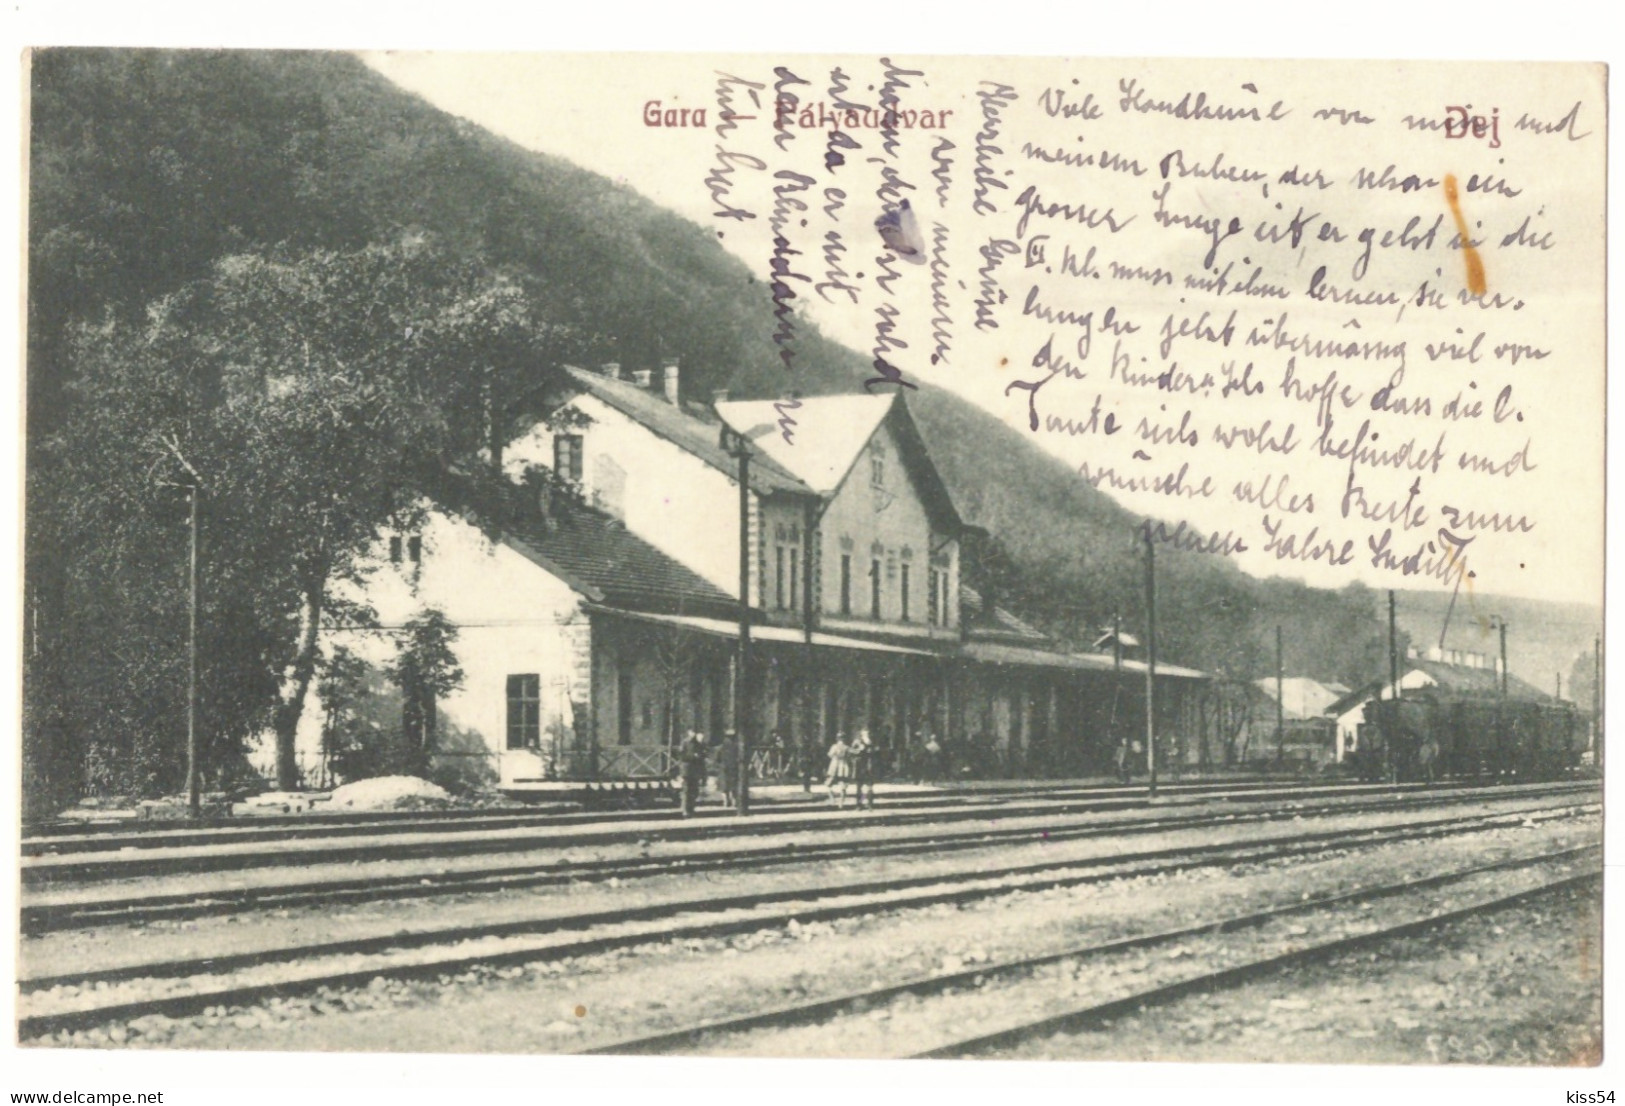 Gara — Pályaudvar
Dej
Viele Handküsse von mir und
meinem Buben, der schon ein
grosser Junge ist, er geht in die
II. Kl. muss mit ihm lernen, sie ver-
langen jetzt übermässig viel von
den Kindern. Ich hoffe dass die l.
Tante sich wohl befindet und
wünsche alles Beste zum
neuen Jahre Judith.
Herzliche Grüsse
von meinem
Mann, der sehr
ist, da er mit
dem Blinddarm zu
tun hat.
www.delcampe.net
kiss54